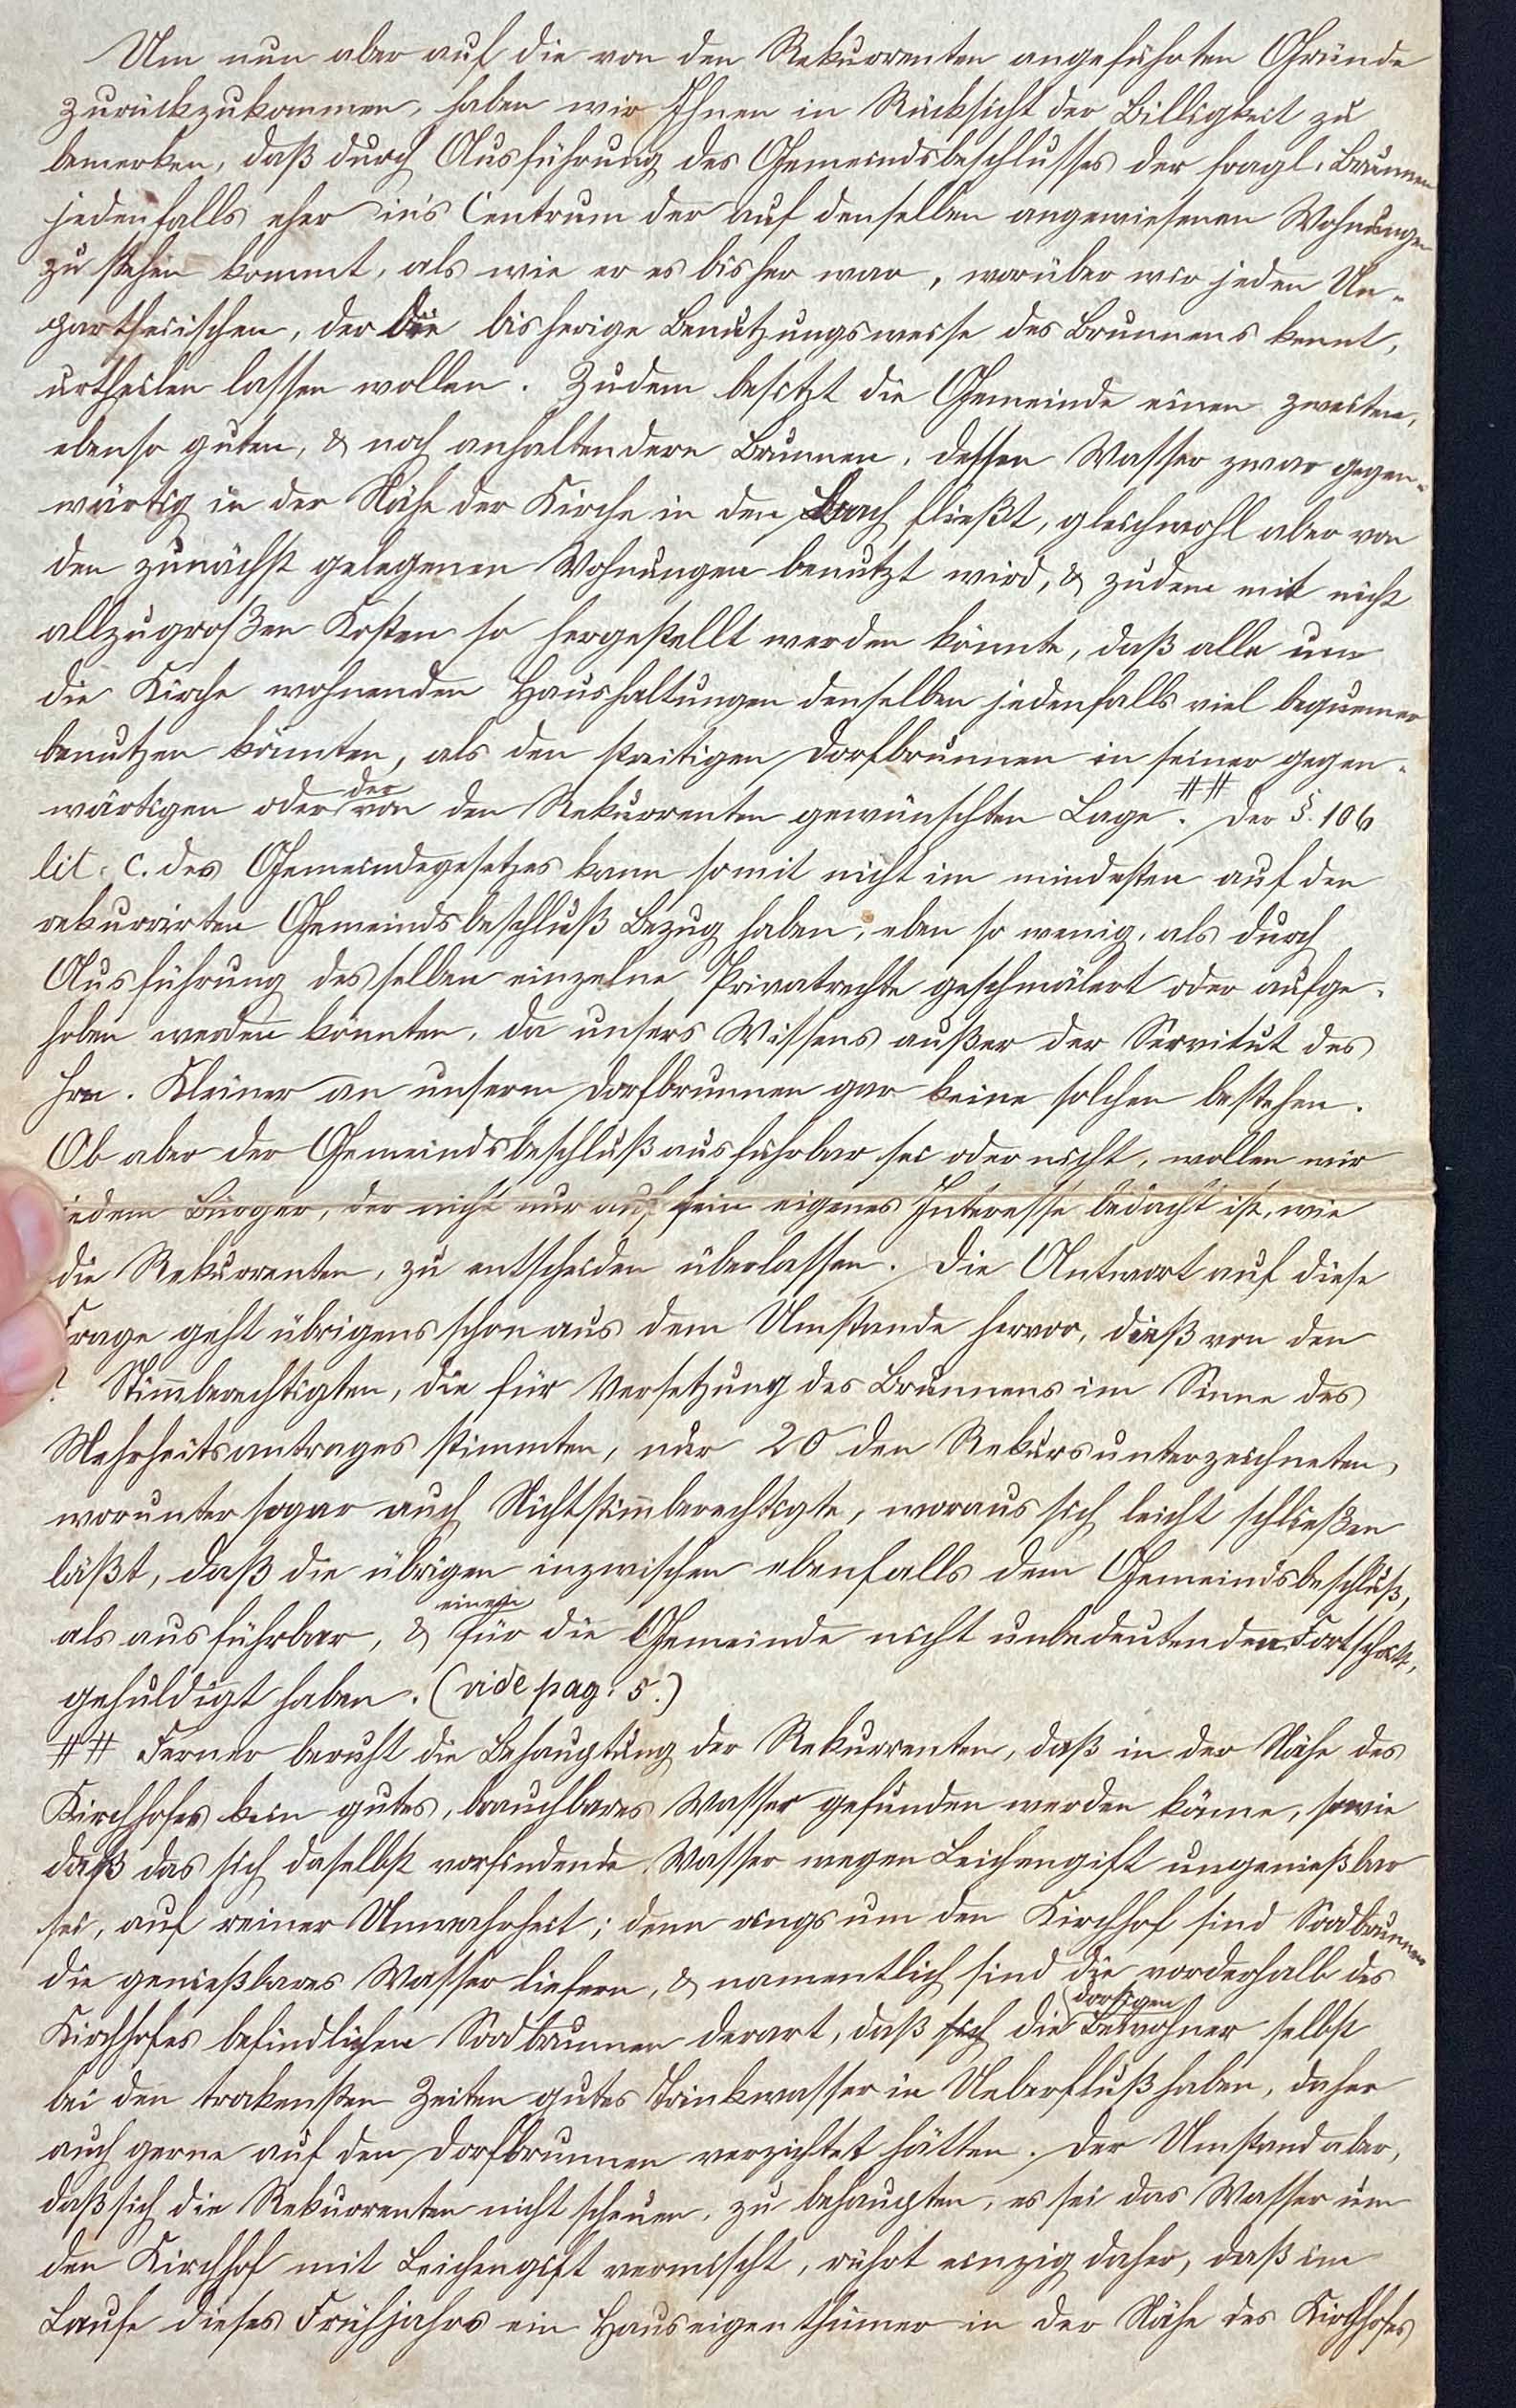 Um nun aber auf die von den Rekurrenten angeführten Gründe
zurückzukommen, haben wir Ihnen in Rücksicht der Billigkeit zu
bemerken, daß durch Ausführung des Gemeindsbeschlusses der fragl. Brunnen
jedenfalls eher in's Centrum der auf denselben angewiesenen Wohnungen
zu stehen kommt, als wie er es bisher war, worüber wir jeden Un-
partheiischen, der die bisherige Benutzungsweise des Brunnens kennt,
urtheilen lassen wollen. Zudem besitzt die Gemeinde einen zweiten,
ebenso guten, & noch anhaltendern Brunnen, dessen Wasser zwar gegen-
wärtig in der Nähe der Kirche in den Bach fließt, gleichwohl aber von
den zunächst gelegenen Wohnungen benutzt wird, & zudem mit nicht
allzugroßen Kosten so hergestellt werden könnte, daß alle um
die Kirche wohnenden Haushaltungen denselben jedenfalls viel bequemer
benutzen könnten, als den streitigen Dorfbrunnen in seiner gegen-
wärtigen oder der von den Rekurrenten gewünschten Lage. ## Der §. 106
lit. c. des Gemeindegesetzes kann somit nicht im mindesten auf den
rekurrirten Gemeindsbeschluß Bezug haben, eben so wenig, als durch
Ausführung desselben einzelne Privatrechte geschmälert oder aufge-
hoben werden könnten, da unsers Wissens außer der Servitut des
Hrn. Kleiner an unserm Dorfbrunnen gar keine solchen bestehen.
Ob aber der Gemeindsbeschluß ausführbar sei oder nicht, wollen wir
jedem Bürger, der nicht nur auf sein eigenes Interesse bedacht ist, wie
die Rekurrenten, zu entscheiden überlassen. Die Antwort auf diese
Frage geht übrigens schon aus dem Umstande hervor, daß von den
? Stimmberechtigten, die für Versetzung des Brunnens im Sinne des
Mehrheitsantrages stimmten, nur 20 den Rekurs unterzeichneten,
worunter sogar auch Nichtstimmberechtigte, woraus sich leicht schließen
läßt, daß die übrigen inzwischen ebenfalls dem Gemeindsbeschluß,
als ausführbar, & einen für die Gemeinde nicht unbedeutenden Fortschritt,
gehuldigt haben. (vide pag. 5.)
## Ferner beruht die Behauptung der Rekurrenten, daß in der Nähe des
Kirchhofes kein gutes, brauchbares Wasser gefunden werden könne, sowie
daß das sich daselbst vorfindende Wasser wegen Leichengift ungenießbar
sei, auf reiner Unwahrheit; denn rings um den Kirchhof sind Soodbrunnen
die genießbares Wasser liefern, & namentlich sind die vorderhalb des
Kirchhofes befindlichen Soodbrunnen derart, daß sich die dortigen Bewohner selbst
bei den trokensten Zeiten gutes Trinkwasser in Ueberfluß haben, daher
auch gerne auf den Dorfbrunnen verzichtet hätten. Der Umstand aber,
daß sich die Rekurrenten nicht scheuen, zu behaupten, es sei das Wasser um
den Kirchhof mit Leichengift vermischt, rührt einzig daher, daß im
Laufe dieses Frühjahrs ein Hauseigenthümer in der Nähe des Kirchhofes